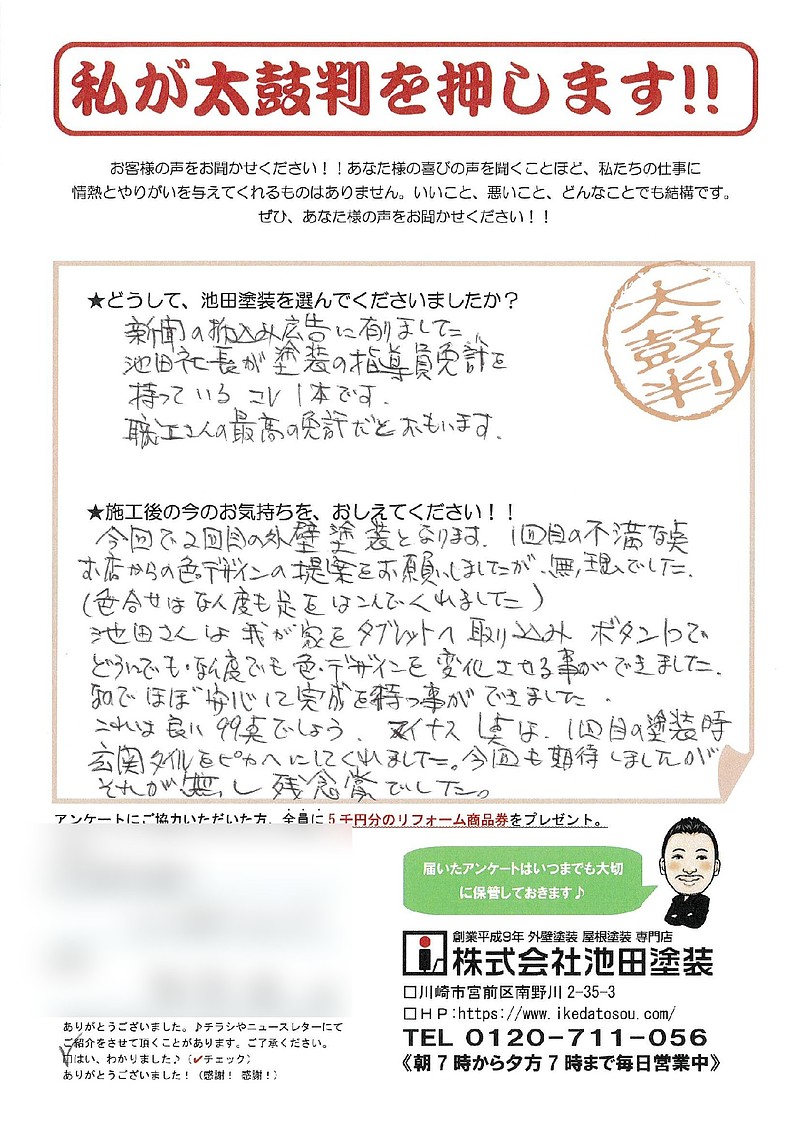 私が太鼓判を押します!!
お客様の声をお聞かせください！！あなた様の喜びの声を聞くことほど、私たちの仕事に
情熱とやりがいを与えてくれるものはありません。いいこと、悪いこと、どんなことでも結構です。
ぜひ、あなた様の声をお聞かせください！！
太鼓判
★どうして、池田塗装を選んでくださいましたか？
新聞の折込み広告に有りました
池田社長が塗装の指導員免許を
持っている コレ1本です.
職工さんの最高の免許だとおもいます.
★施工後の今のお気持ちを、おしえてください！！
今回で2回目の外壁塗装となります. 1回目の不満な点
お店からの色デザインの提案をお願いしましたが、無理でした.
(色合せはなん度も足をはこんでくれました)
池田さんは我が家をタブレットへ取り込み ボタン1つで
どうにでも・なん度でも色・デザインを変化させる事ができました.
なので ほぼ安心して完成を待つ事ができました.
これは良い 99点でしょう. マイナス1点は、1回目の塗装時
玄関タイルをピカピカにしてくれました。今回も期待しましたが
それが無し 残念賞でした。
アンケートにご協力いただいた方、全員に5千円分のリフォーム商品券をプレゼント。
届いたアンケートはいつまでも大切
に保管しておきます♪
創業平成9年 外壁塗装 屋根塗装 専門店
株式会社池田塗装
□川崎市宮前区南野川2-35-3
□ＨＰ:https://www.ikedatosou.com/
TEL 0120-711-056
《朝7時から夕方7時まで毎日営業中》
ありがとうございました。♪チラシやニュースレターにて
ご紹介をさせて頂くことがあります。ご了承ください。
□はい、わかりました♪（✔チェック）
ありがとうございました！（感謝！感謝！）